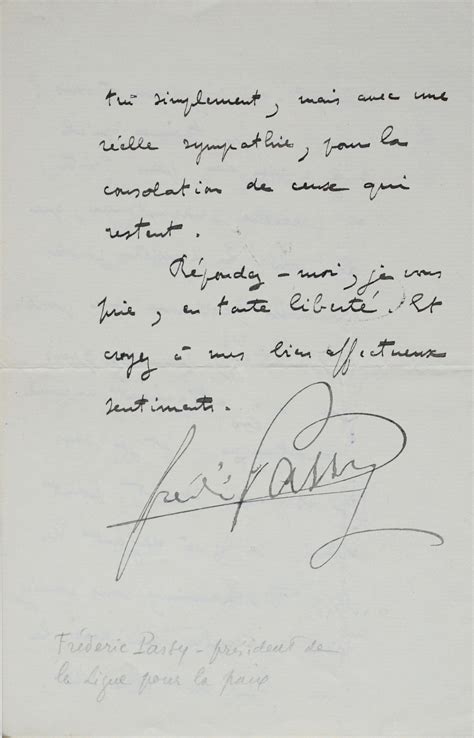 très simplement, mais avec une
réelle sympathie, pour la
consolation de ceux qui
restent.
Répondez-moi, je vous
prie, en toute liberté. Et
croyez à mes bien affectueux
sentiments.
Frédé Passy
Fréderic Passy - président de
la Ligue pour la paix